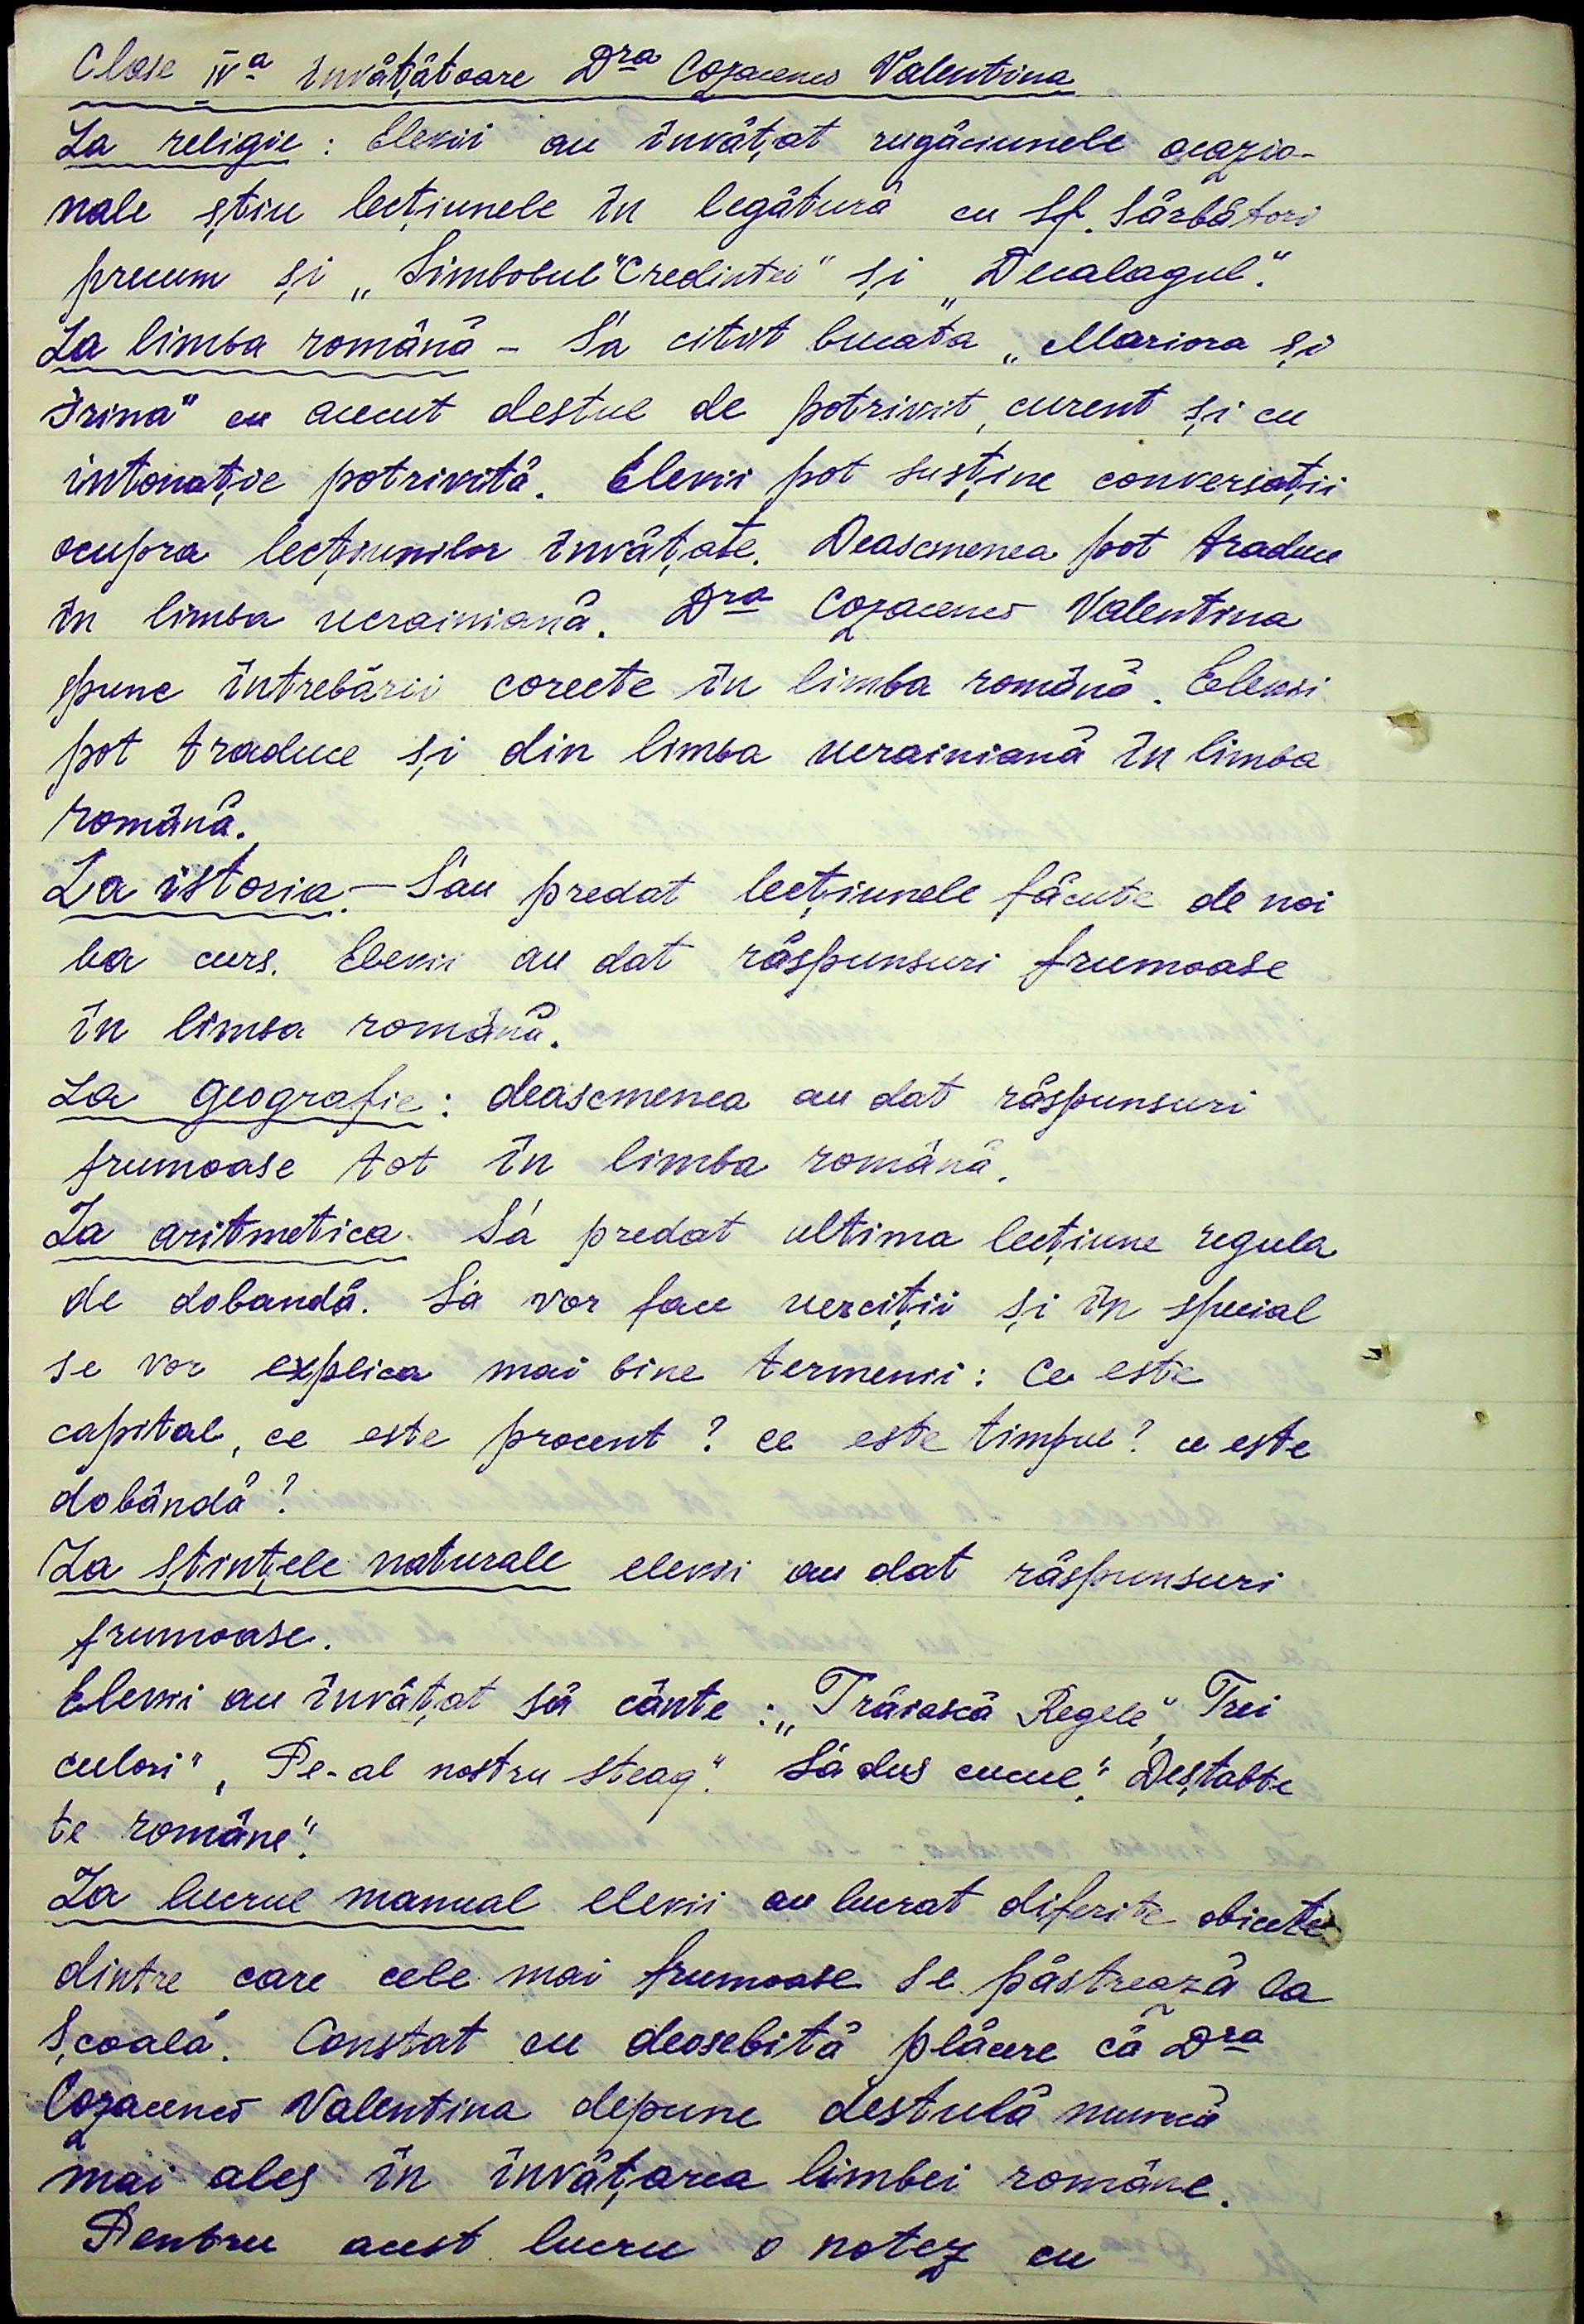 Clasa IVa învățătoare Dra Cozacenco Valentina
La religie: Elevii au învățat rugăciunele ocazio-
nale știu lecțiunele în legătură cu Sf. Sărbători
precum și „Simbolul "Credintei" și „Decalagul".
La limba română - S'a citit bucata „Mariora și
Irina" cu accent destul de potrivit, curent și cu
intonație potrivită. Elevii pot susține conversații
asupra lecțiunilor învățate. Deasemenea pot traduce
în limba ucrainiană. Dra Cozacenco Valentina
pune întrebării corecte în limba română. Elevii
pot traduce și din limba ucrainiană în limba
română.
La istoria - S'au predat lecțiunele făcute de noi
la curs. Elevii au dat răspunsuri frumoase
în limba română.
La geografie: deasemenea au dat răspunsuri
frumoase tot în limba română.
La aritmetica. S'a predat ultima lecțiune regula
de dobandă. Să vor face exerciții și în special
se vor explica mai bine termenii: Ce este
capital, ce este procent? ce este timpul? ce este
dobândă?
La ștințele naturale elevii au dat răspunsuri
frumoase.
Elevii au învățat să cânte: „Trăiască Regele", Trei
culori", Pe-al nostru steag". S'a dus cucul", Deștabte
te române".
La lucrul manual elevii au lucrat diferite obiecte
dintre care cele mai frumoase se păstrează la
școală. Constat cu deosebită plăcere că Dra
Cozacenco Valentina depune destulă muncă
mai ales în învățarea limbei române.
Pentru acest lucru o notez cu